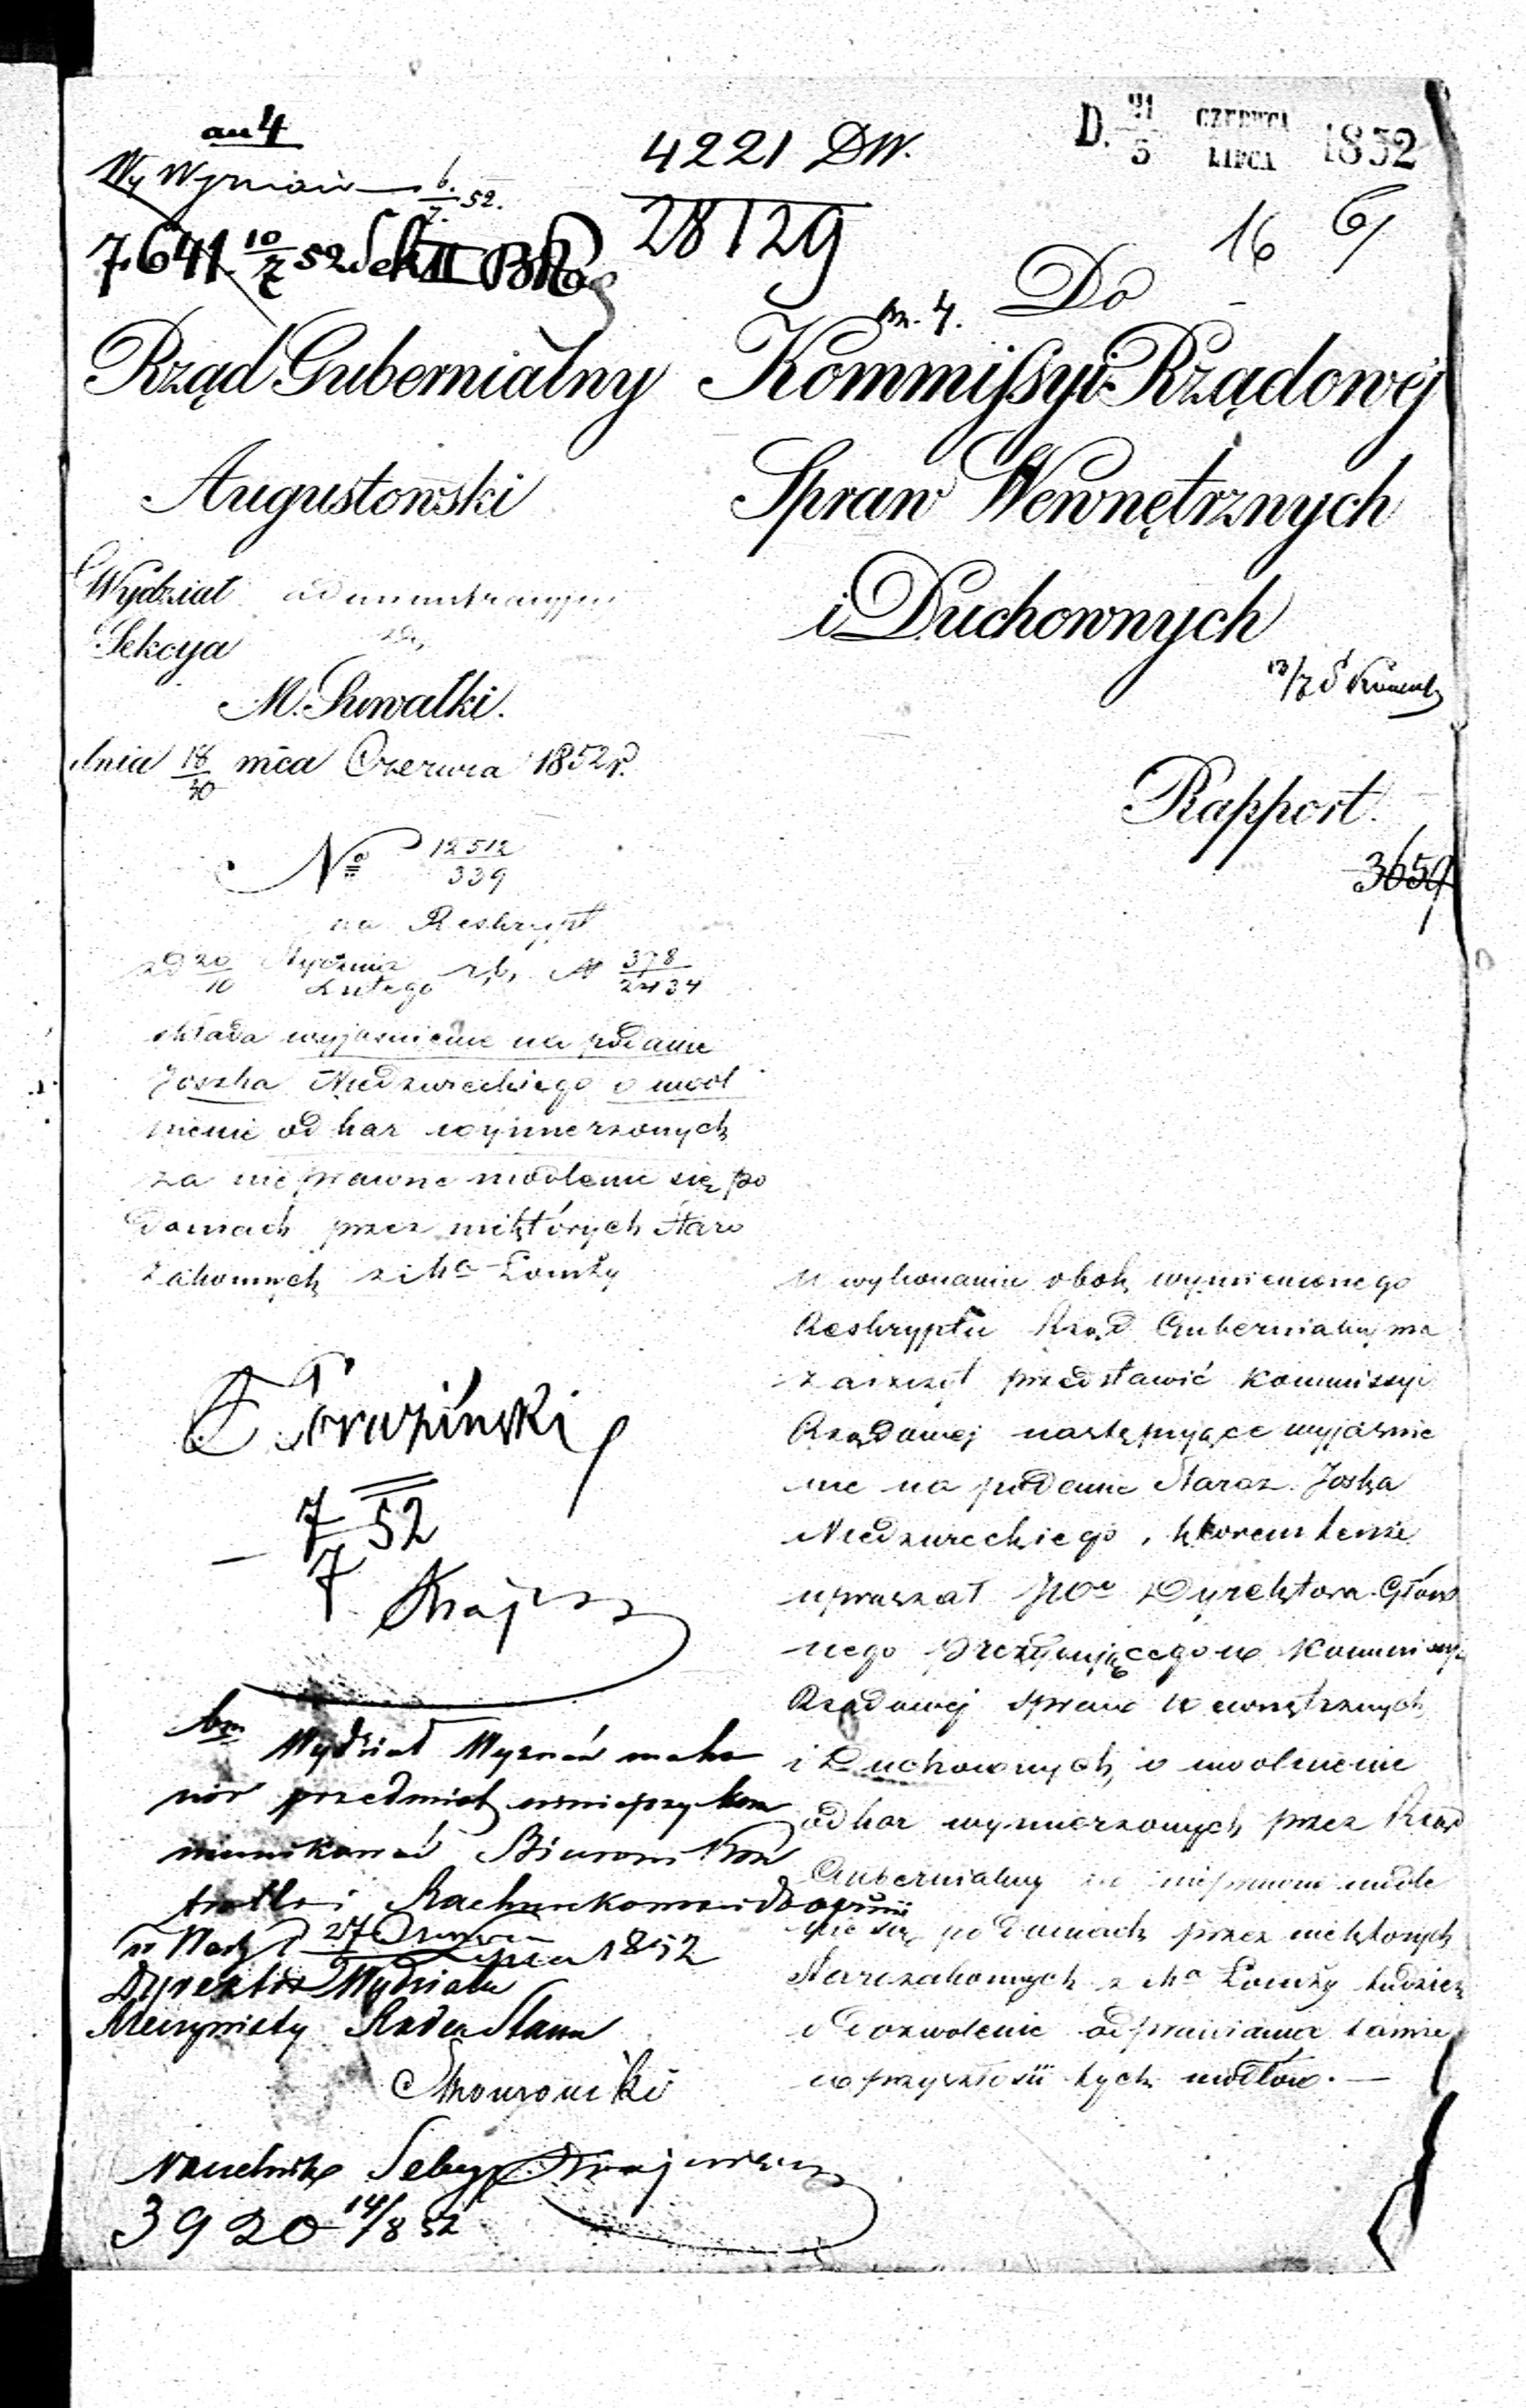 au 4
Wy Wyznań 6/7. 52.
7641. 10/7 52 Sek II
4221 DW.
28129
D. 21/3 CZERWCA/LIPCA 1852
16 6/
Do
Rząd Gubernialny
Augustowski
Wydział administracyjny
Sekcya
M. Suwałki.
dnia 18/30 mca Czerwca 1852 r.
No 12512/339
na Reskrypt
z d 20/10 Stycznia/Lutego r, b, N 378/2434
składa wyjasnienie na podanie
Joszka Niedzwieckiego o uwol
nienie od kar wymierzonych
za nieprawne modlenie się po
domach przez niektórych Staro
zakonnych z Ma Łomży
Kommissyi Rządowej
Spraw Wewnętrznych
i Duchownych
13/7
Rapport.
3659
W wykonaniu obok wymienionego
Reskryptu Rząd Gubernialny ma
zaszczyt przedstawić Kommissyi
Rządowej następujące wyjaśnie
nie na podanie Staroz. Joska
Niedzwieckiego, którem tenże
upraszał JWo Dyrektora Głów
nego Prezydującego w Kommissyi
Rządowej Spraw Wewnętrznych
i Duchownych, o uwolnienie
od kar wymierzonych przez Rząd
Gubernialny za nieprawne modle
nie się po domach przez niektórych
Starozakonnych z Ma Łomży tudzież
o dozwolenie odprawiania tamże
w przyszłości tych modłów. —
7/7 52
Wydział Wyznań ma ho
nor przedmiot niniejszy kom
munikować Biurowi Kon
trolli i Rachunkowości do opinii
w Warsz d 27 Czerwca 1852
Dyrektor Wydziału
Rzeczywisty Radca Stanu
Naczelnik Sekcyi
3920 14/8 52